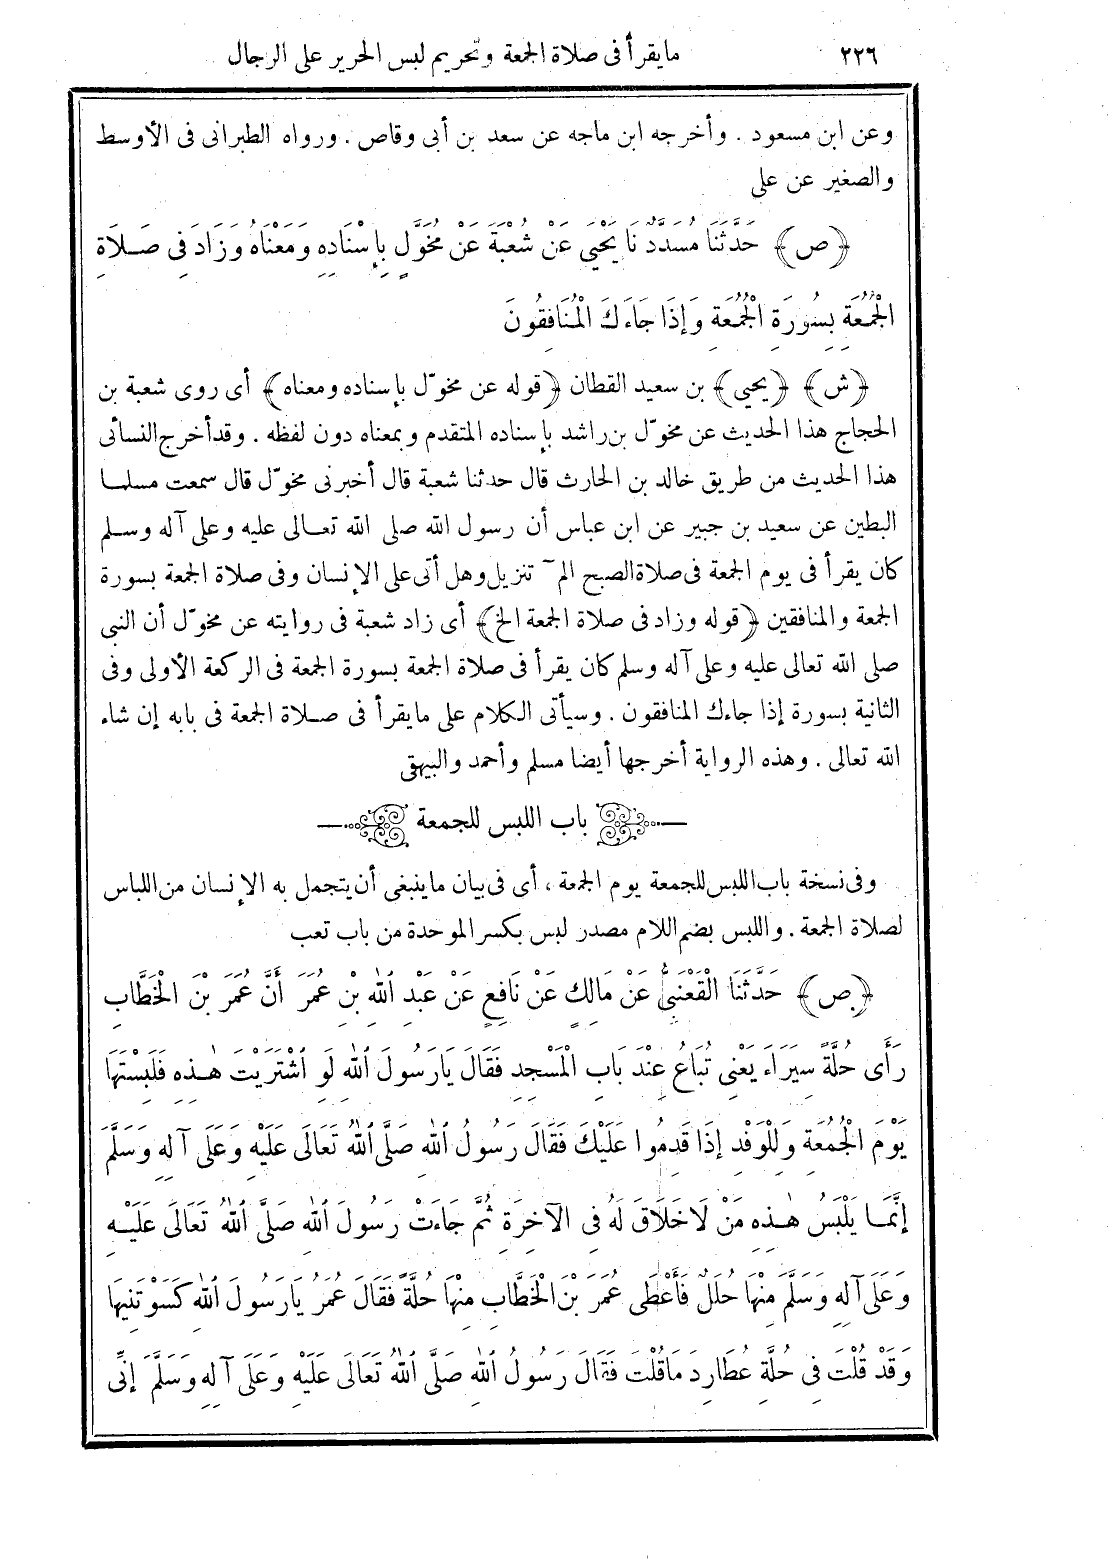 ٢٢٦ ما يقرأ فى صلاة الجمعة وتحريم لبس الحرير على الرجال
وعن ابن مسعود . وأخرجه ابن ماجه عن سعد بن أبى وقاص . ورواه الطبرانى فى الأوسط
والصغير عن على
﴿ص﴾ حَدَّثَنَا مُسَدَّدٌ نَا يَحْيَى عَنْ شُعْبَةَ عَنْ مُخَوَّلٍ بِإِسْنَادِهِ وَمَعْنَاهُ وَزَادَ فِى صَلَاةِ
الْجُمُعَةِ بِسُورَةِ الْجُمُعَةِ وَإِذَا جَاءَكَ الْمُنَافِقُونَ
﴿ش﴾ ﴿يحيى﴾ بن سعيد القطان ﴿قوله عن مخوّل بإسناده ومعناه﴾ أى روى شعبة بن
الحجاج هذا الحديث عن مخوّل بن راشد بإسناده المتقدم وبمعناه دون لفظه . وقد أخرج النسائى
هذا الحديث من طريق خالد بن الحارث قال حدثنا شعبة قال أخبرنى مخوّل قال سمعت مسلما
البطين عن سعيد بن جبير عن ابن عباس أن رسول الله صلى الله تعالى عليه وعلى آله وسلم
كان يقرأ فى يوم الجمعة فى صلاة الصبح الم~ تنزيل وهل أتى على الإنسان وفى صلاة الجمعة بسورة
الجمعة والمنافقين ﴿قوله وزاد فى صلاة الجمعة الخ﴾ أى زاد شعبة فى روايته عن مخوّل أن النبى
صلى الله تعالى عليه وعلى آله وسلم كان يقرأ فى صلاة الجمعة بسورة الجمعة فى الركعة الأولى وفى
الثانية بسورة إذا جاءك المنافقون . وسيأتى الكلام على ما يقرأ فى صلاة الجمعة فى بابه إن شاء
الله تعالى . وهذه الرواية أخرجها أيضا مسلم وأحمد والبيهقى
باب اللبس للجمعة
وفى نسخة باب اللبس للجمعة يوم الجمعة ، أى فى بيان ما ينبغى أن يتجمل به الإنسان من اللباس
لصلاة الجمعة . واللبس بضم اللام مصدر لبس بكسر الموحدة من باب تعب
﴿ص﴾ حَدَّثَنَا الْقَعْنَبِىُّ عَنْ مَالِكٍ عَنْ نَافِعٍ عَنْ عَبْدِ اللهِ بْنِ عُمَرَ أَنَّ عُمَرَ بْنَ الْخَطَّابِ
رَأَى حُلَّةً سِيَرَاءَ يَعْنِى تُبَاعُ عِنْدَ بَابِ الْمَسْجِدِ فَقَالَ يَارَسُولَ اللهِ لَوِ اشْتَرَيْتَ هٰذِهِ فَلَبِسْتَهَا
يَوْمَ الْجُمُعَةِ وَلِلْوَفْدِ إِذَا قَدِمُوا عَلَيْكَ فَقَالَ رَسُولُ اللهِ صَلَّى اللهُ تَعَالَى عَلَيْهِ وَعَلَى آلِهِ وَسَلَّمَ
إِنَّمَا يَلْبَسُ هٰذِهِ مَنْ لَا خَلَاقَ لَهُ فِى الْآخِرَةِ ثُمَّ جَاءَتْ رَسُولَ اللهِ صَلَّى اللهُ تَعَالَى عَلَيْهِ
وَعَلَى آلِهِ وَسَلَّمَ مِنْهَا حُلَلٌ فَأَعْطَى عُمَرَ بْنَ الْخَطَّابِ مِنْهَا حُلَّةً فَقَالَ عُمَرُ يَارَسُولَ اللهِ كَسَوْتَنِيهَا
وَقَدْ قُلْتَ فِى حُلَّةِ عُطَارِدَ مَا قُلْتَ فَقَالَ رَسُولُ اللهِ صَلَّى اللهُ تَعَالَى عَلَيْهِ وَعَلَى آلِهِ وَسَلَّمَ إِنِّى